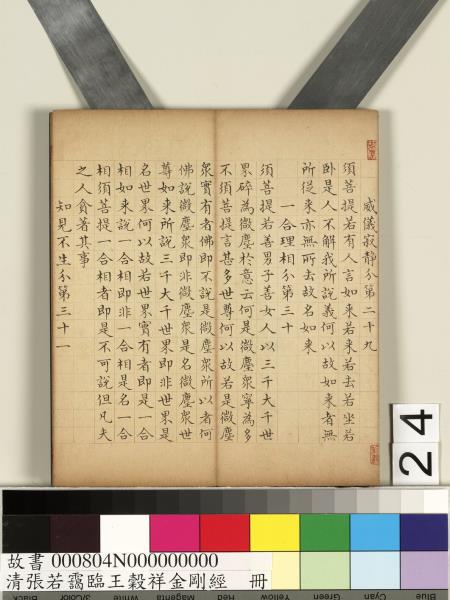 威儀寂靜分第二十九
須菩提若有人言如來若來若去若坐若
卧是人不解我所說義何以故如來者無
所從來亦無所去故名如來
一合理相分第三十
須菩提若善男子善女人以三千大千世
界碎為微塵於意云何是微塵衆寧為多
不須菩提言甚多世尊何以故若是微塵
衆實有者佛即不說是微塵衆所以者何
佛說微塵衆即非微塵衆是名微塵衆世
尊如來所說三千大千世界即非世界是
名世界何以故若世界實有者即是一合
相如來說一合相即非一合相是名一合
相須菩提一合相者即是不可說但凡夫
之人貪著其事
知見不生分第三十一
24
故書 000804N000000000
清張若靄臨王穀祥金剛經 冊
Black
3/Color
White
Magenta
Red
Yellow
Green
Cyan
Blue